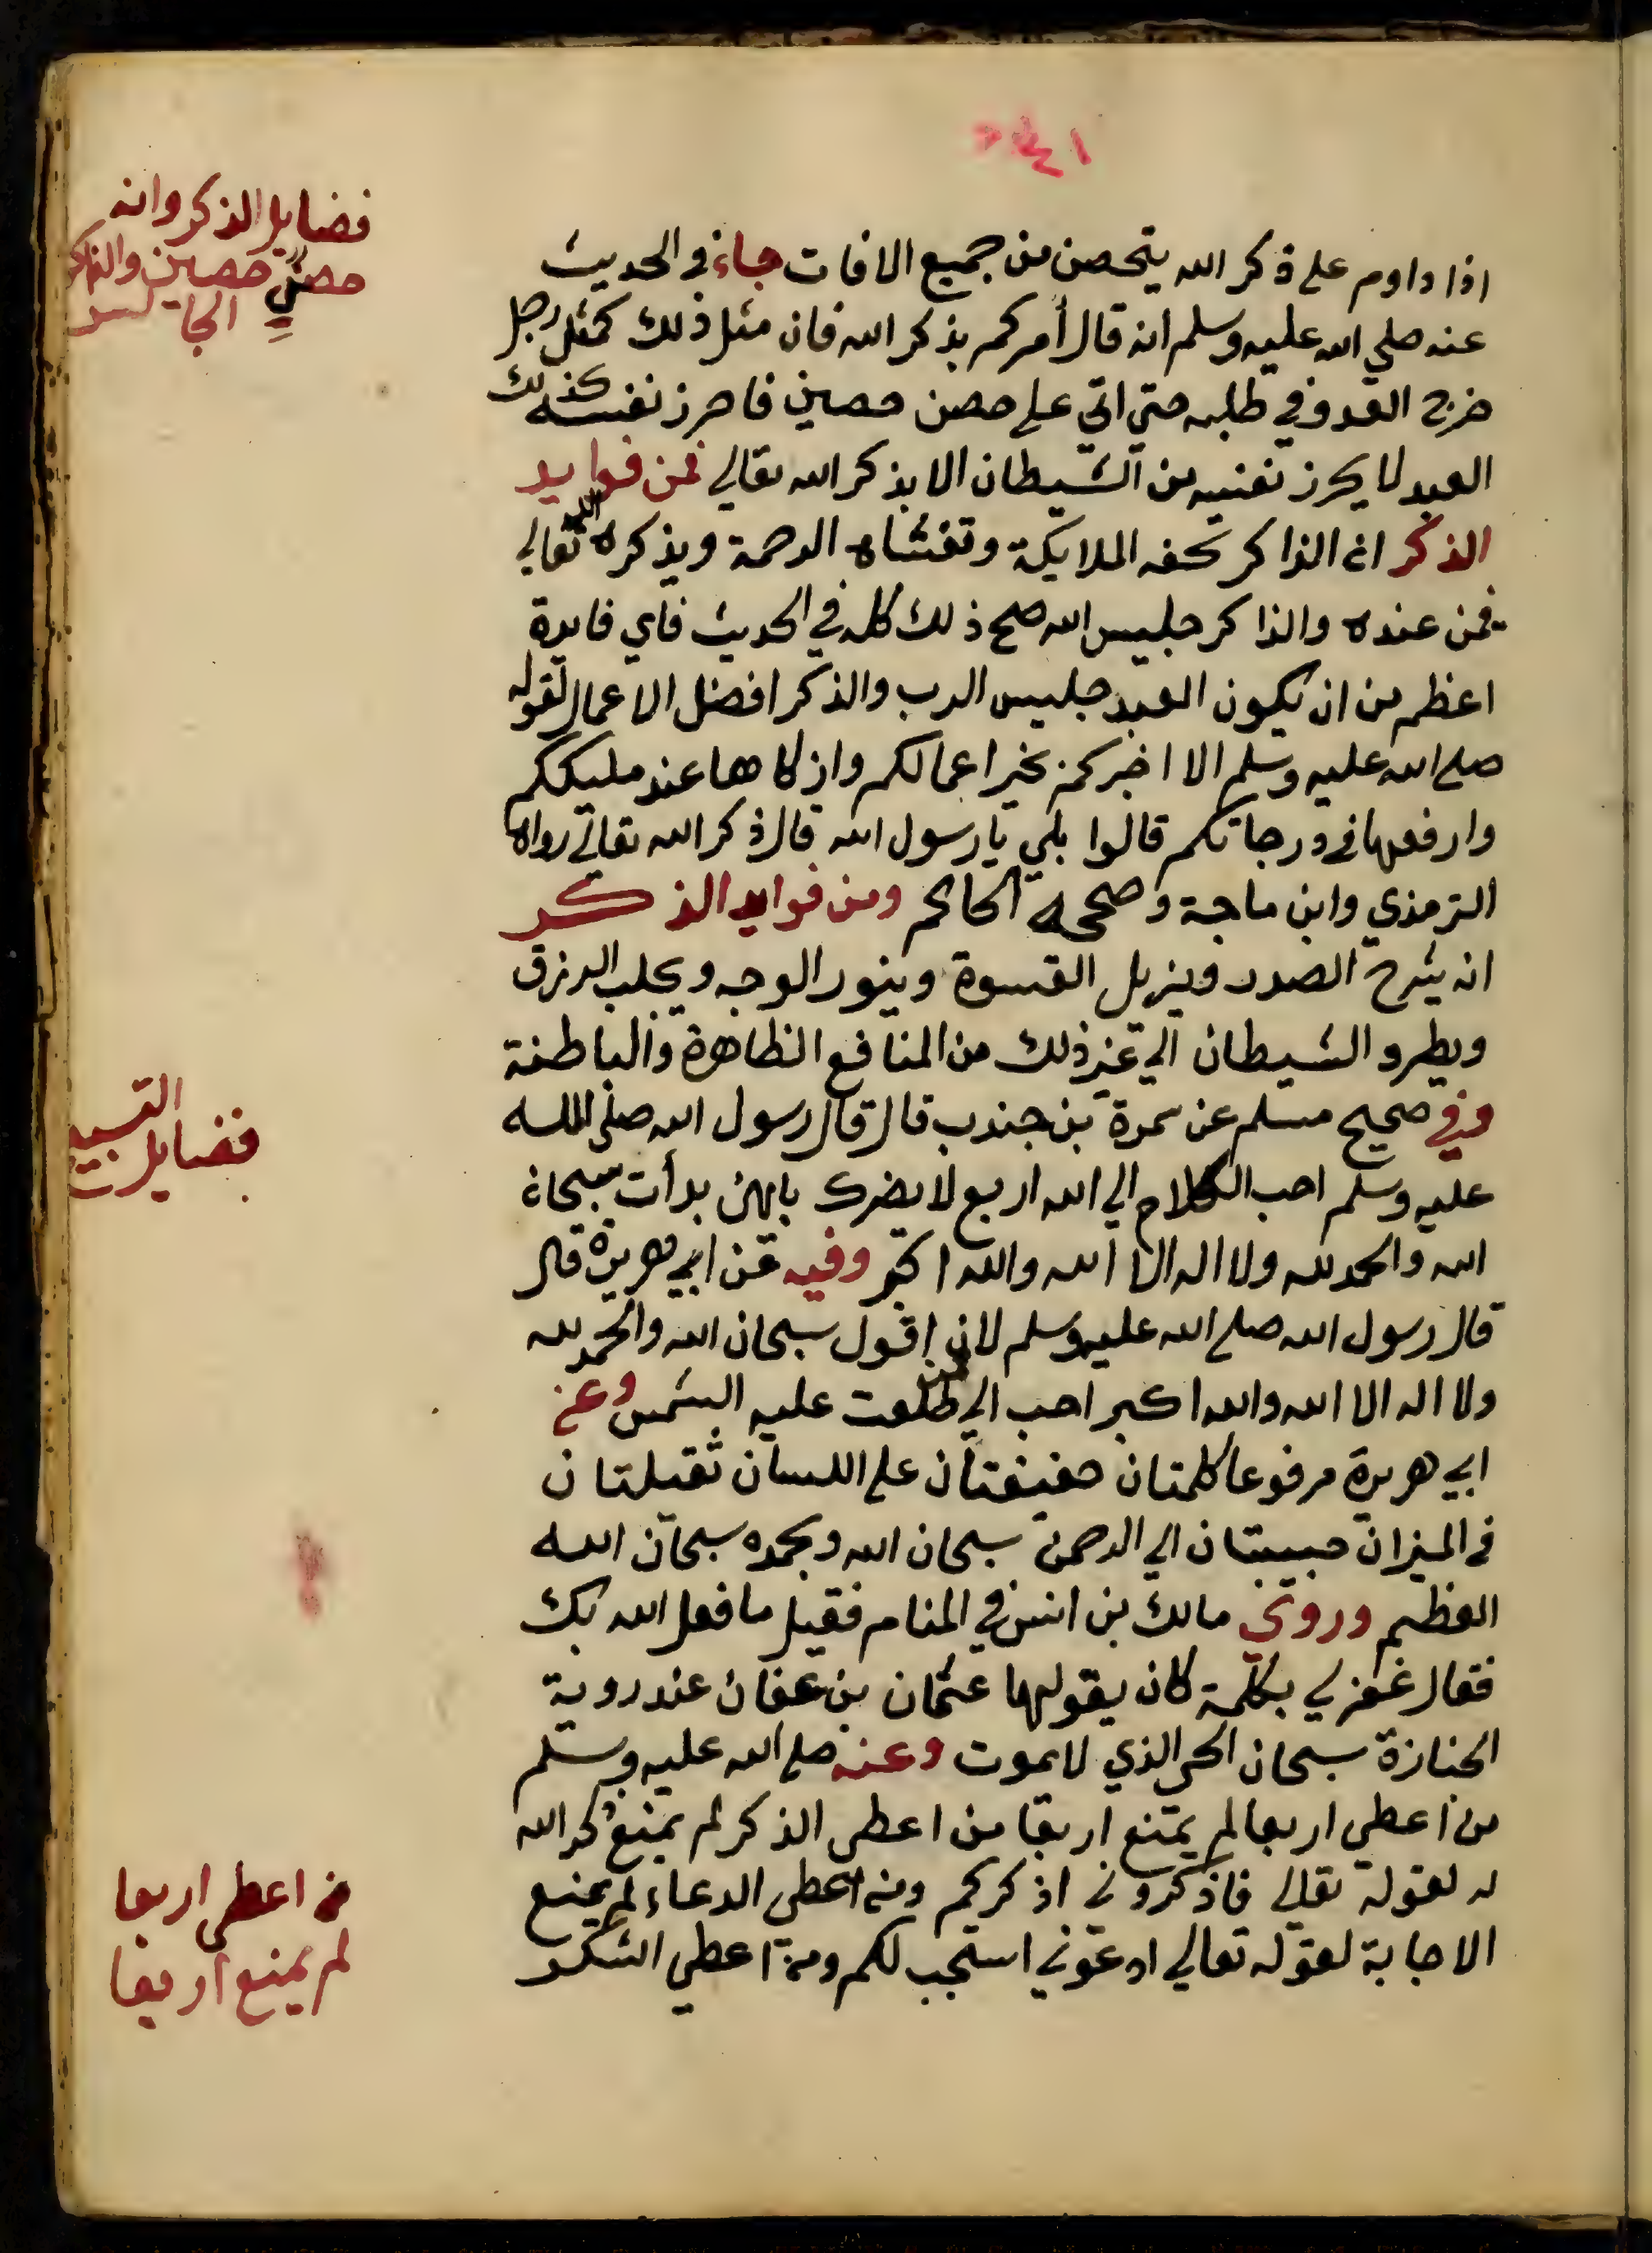 فضايل الذكر وانه
حصن حصين والذاكر
اذا داوم على ذكر الله يتحصن من جميع الافات جاء في الحديث
عنه صلي الله عليه وسلم انه قال أمركم بذكر الله فان مثل ذلك كمثل رجل
خرج العدو في طلبه حتي اتي على حصن حصين فاحرز نفسه كذلك
العبد لا يحرز نفسه من الشيطان الا بذكر الله تعالي فمن فوايد
الذكر ان الذاكر تحفه الملايكة وتغشاه الرحمة ويذكره الله تعالي
فيمن عنده والذاكر جليس الله صح ذلك كله في الحديث فاي فايدة
اعظم من ان يكون العبد جليس الرب والذكر افضل الاعمال لقوله
صلى الله عليه وسلم الا اخبركم بخير اعمالكم وازكاها عند مليككم
وارفعها في درجاتكم قالوا بلي يا رسول الله قال ذكر الله تعالي رواه
الترمذي وابن ماجة وصححه الحاكم ومن فوايد الذكر
انه يشرح الصدر ويزيل القسوة وينور الوجه ويجلب الرزق
ويطرد الشيطان الي غير ذلك من المنافع الظاهرة والباطنة
فضايل التسبيح
وفي صحيح مسلم عن سمرة بن جندب قال قال رسول الله صلى الله
عليه وسلم احب الكلام الي الله اربع لا يضرك بايهن بدأت سبحان
الله والحمد لله ولا اله الا الله والله اكبر وفيه عن ابي هريرة قال
قال رسول الله صلى الله عليه وسلم لان اقول سبحان الله والحمد لله
ولا اله الا الله والله اكبر احب الي مما طلعت عليه الشمس وعن
ابي هريرة مرفوعا كلمتان خفيفتان على اللسان ثقيلتان
في الميزان حبيبتان الي الرحمن سبحان الله وبحمده سبحان الله
العظيم وروئي مالك بن انس في المنام فقيل ما فعل الله بك
فقال غفر لي بكلمة كان يقولها عثمان بن عفان عند روية
الجنازة سبحان الحي الذي لا يموت وعنه صلى الله عليه وسلم
من اعطي اربعا لم يمنع اربعا من اعطى الذكر لم يمنع ذكر الله
له لقوله تعالي فاذكروني اذكركم ومن اعطى الدعاء لم يمنع
من اعطى اربعا
لم يمنع اربعا
الاجابة لقوله تعالي ادعوني استجب لكم ومن اعطي الشكر